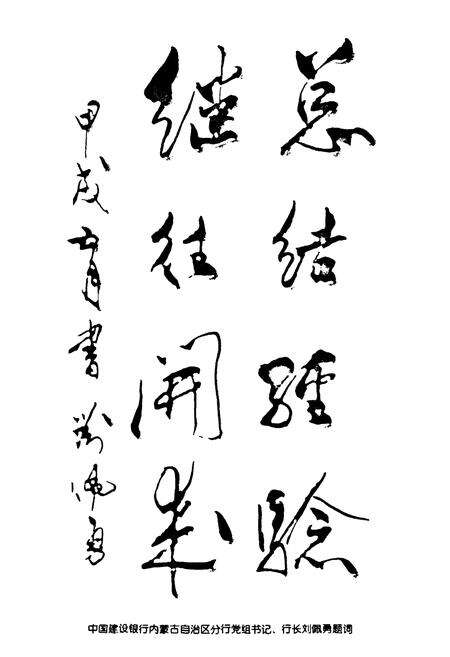 总结经验
继往开来
甲戌五月书 刘佩勇
中国建设银行内蒙古自治区分行党组书记、行长刘佩勇题词